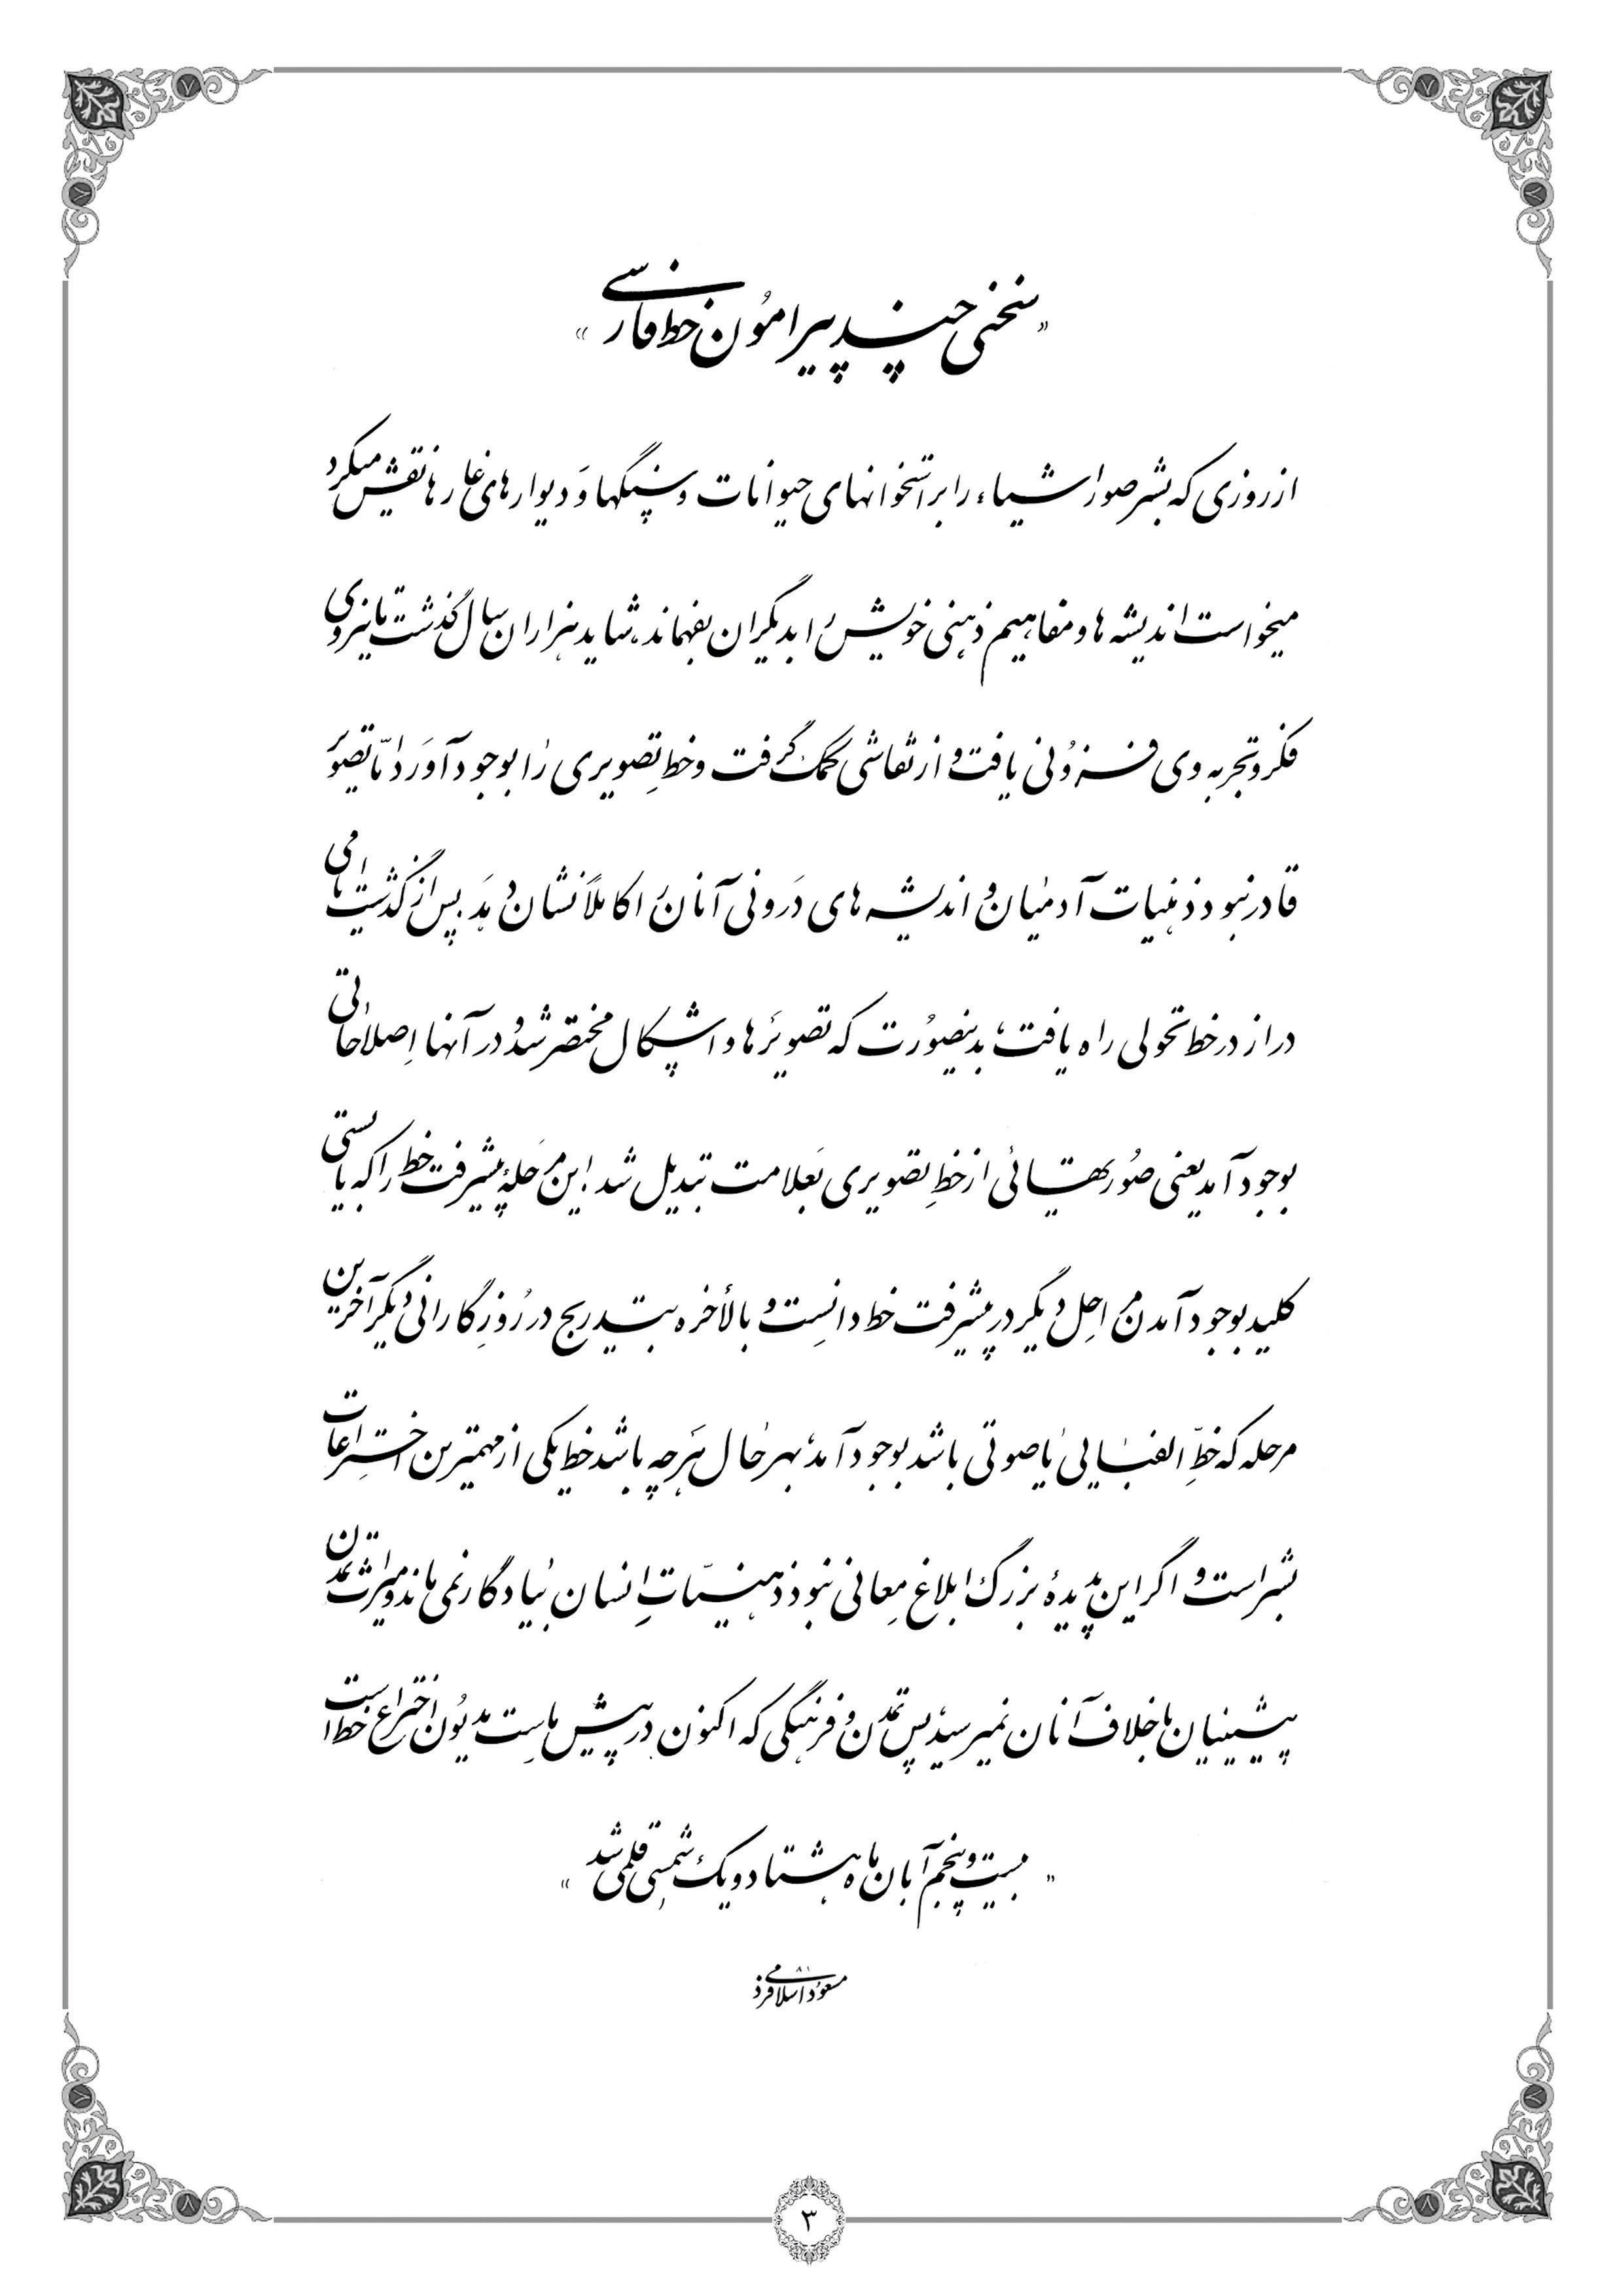 «سخنی چند پیرامون خط فارسی»
از روزی که بشر صور اشیاء را بر استخوانهای حیوانات و سنگها و دیوارهای غارها نقش میکرد
میخواست اندیشه ها و مفاهیم ذهنی خویش را بدیگران بفهماند، شاید هزاران سال گذشت تا نیروی
فکر و تجربه وی فزونی یافت و از نقاشی کمک گرفت و خطِ تصویری را بوجود آورد امّا تصویر
قادر نبود ذهنیات آدمیان و اندیشه های درونی آنان را کاملاً نشان دهد. پس از گذشت ایامی
دراز در خط تحولی راه یافت، بدینصورت که تصویرها و اشکال مختصر شد و در آنها اصلاحاتی
بوجود آمد یعنی صورتهائی از خطِ تصویری بعلامت تبدیل شد. این مرحلهٔ پیشرفت خط را که بایستی
کلید بوجود آمدن مراحل دیگر در پیشرفت خط دانست و بالأخره بتدریج در روزگارانی دیگر آخرین
مرحله که خطِّ الفبایی یا صوتی باشد بوجود آمد، بهر حال هر چه باشد خط یکی از مهمترین اختراعات
بشر است و اگر این پدیدهٔ بزرگ ابلاغ معانی نبود ذهنیّاتِ انسان بیادگار نمی ماند و میراث تمدن
پیشینیان باخلاف آنان نمیرسید، پس تمدن و فرهنگی که اکنون در پیش ماست مدیون اختراع خط است
«بیست و پنجم آبان ماه هشتاد و یک شمسی قلمی شد»
مسعود اسلامی فرد ۸۱
۳